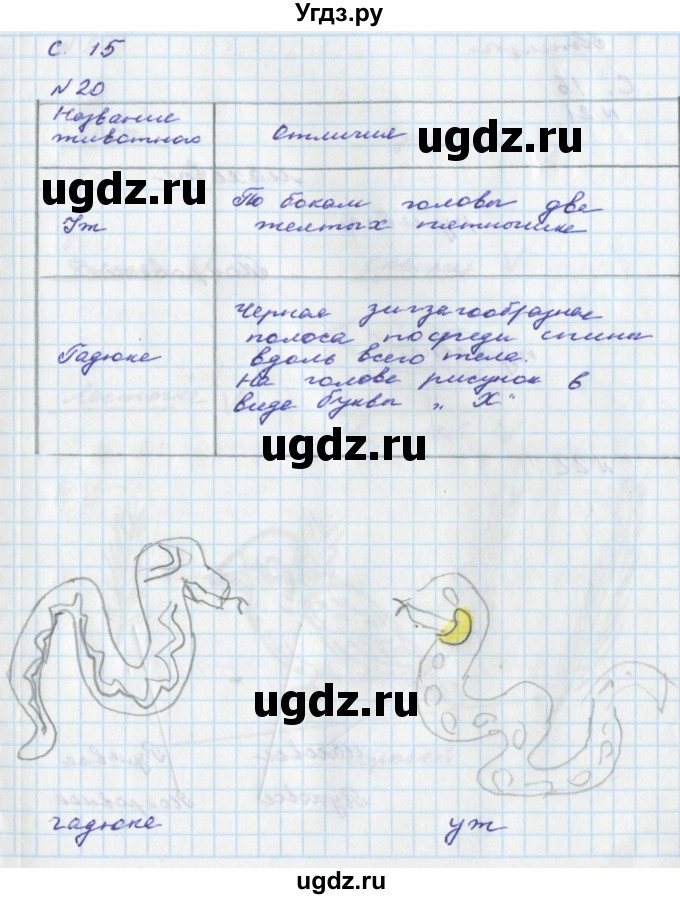 Угдз.ру
с. 15
N 20
Название животного
Отличия
ugdz.ru
ugdz.ru
Уж
По бокам головы две
желтых пятнышке
Гадюке
Черная зигзагообразная
полоса посреди спины
вдоль всего тела.
На голове рисунок в
виде буквы „Х“
ugdz.ru
ugdz.ru
гадюке
уж
ugdz.ru